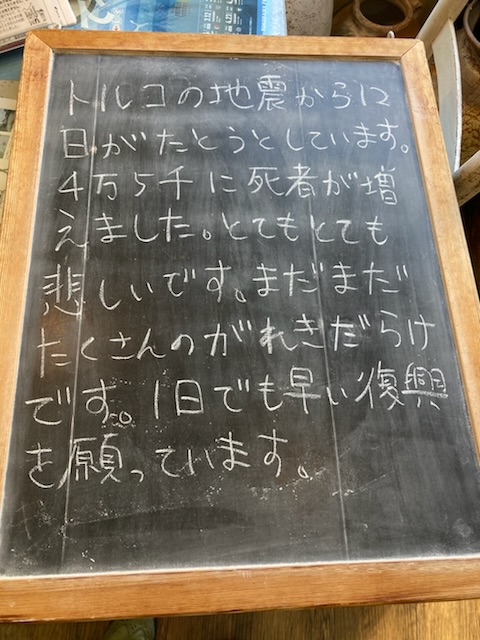 トルコの地震から12
日がたとうとしています。
4万5千に死者が増
えました。とてもとても
悲しいです。まだまだ
たくさんのがれきだらけ
です。1日でも早い復興
を願っています。